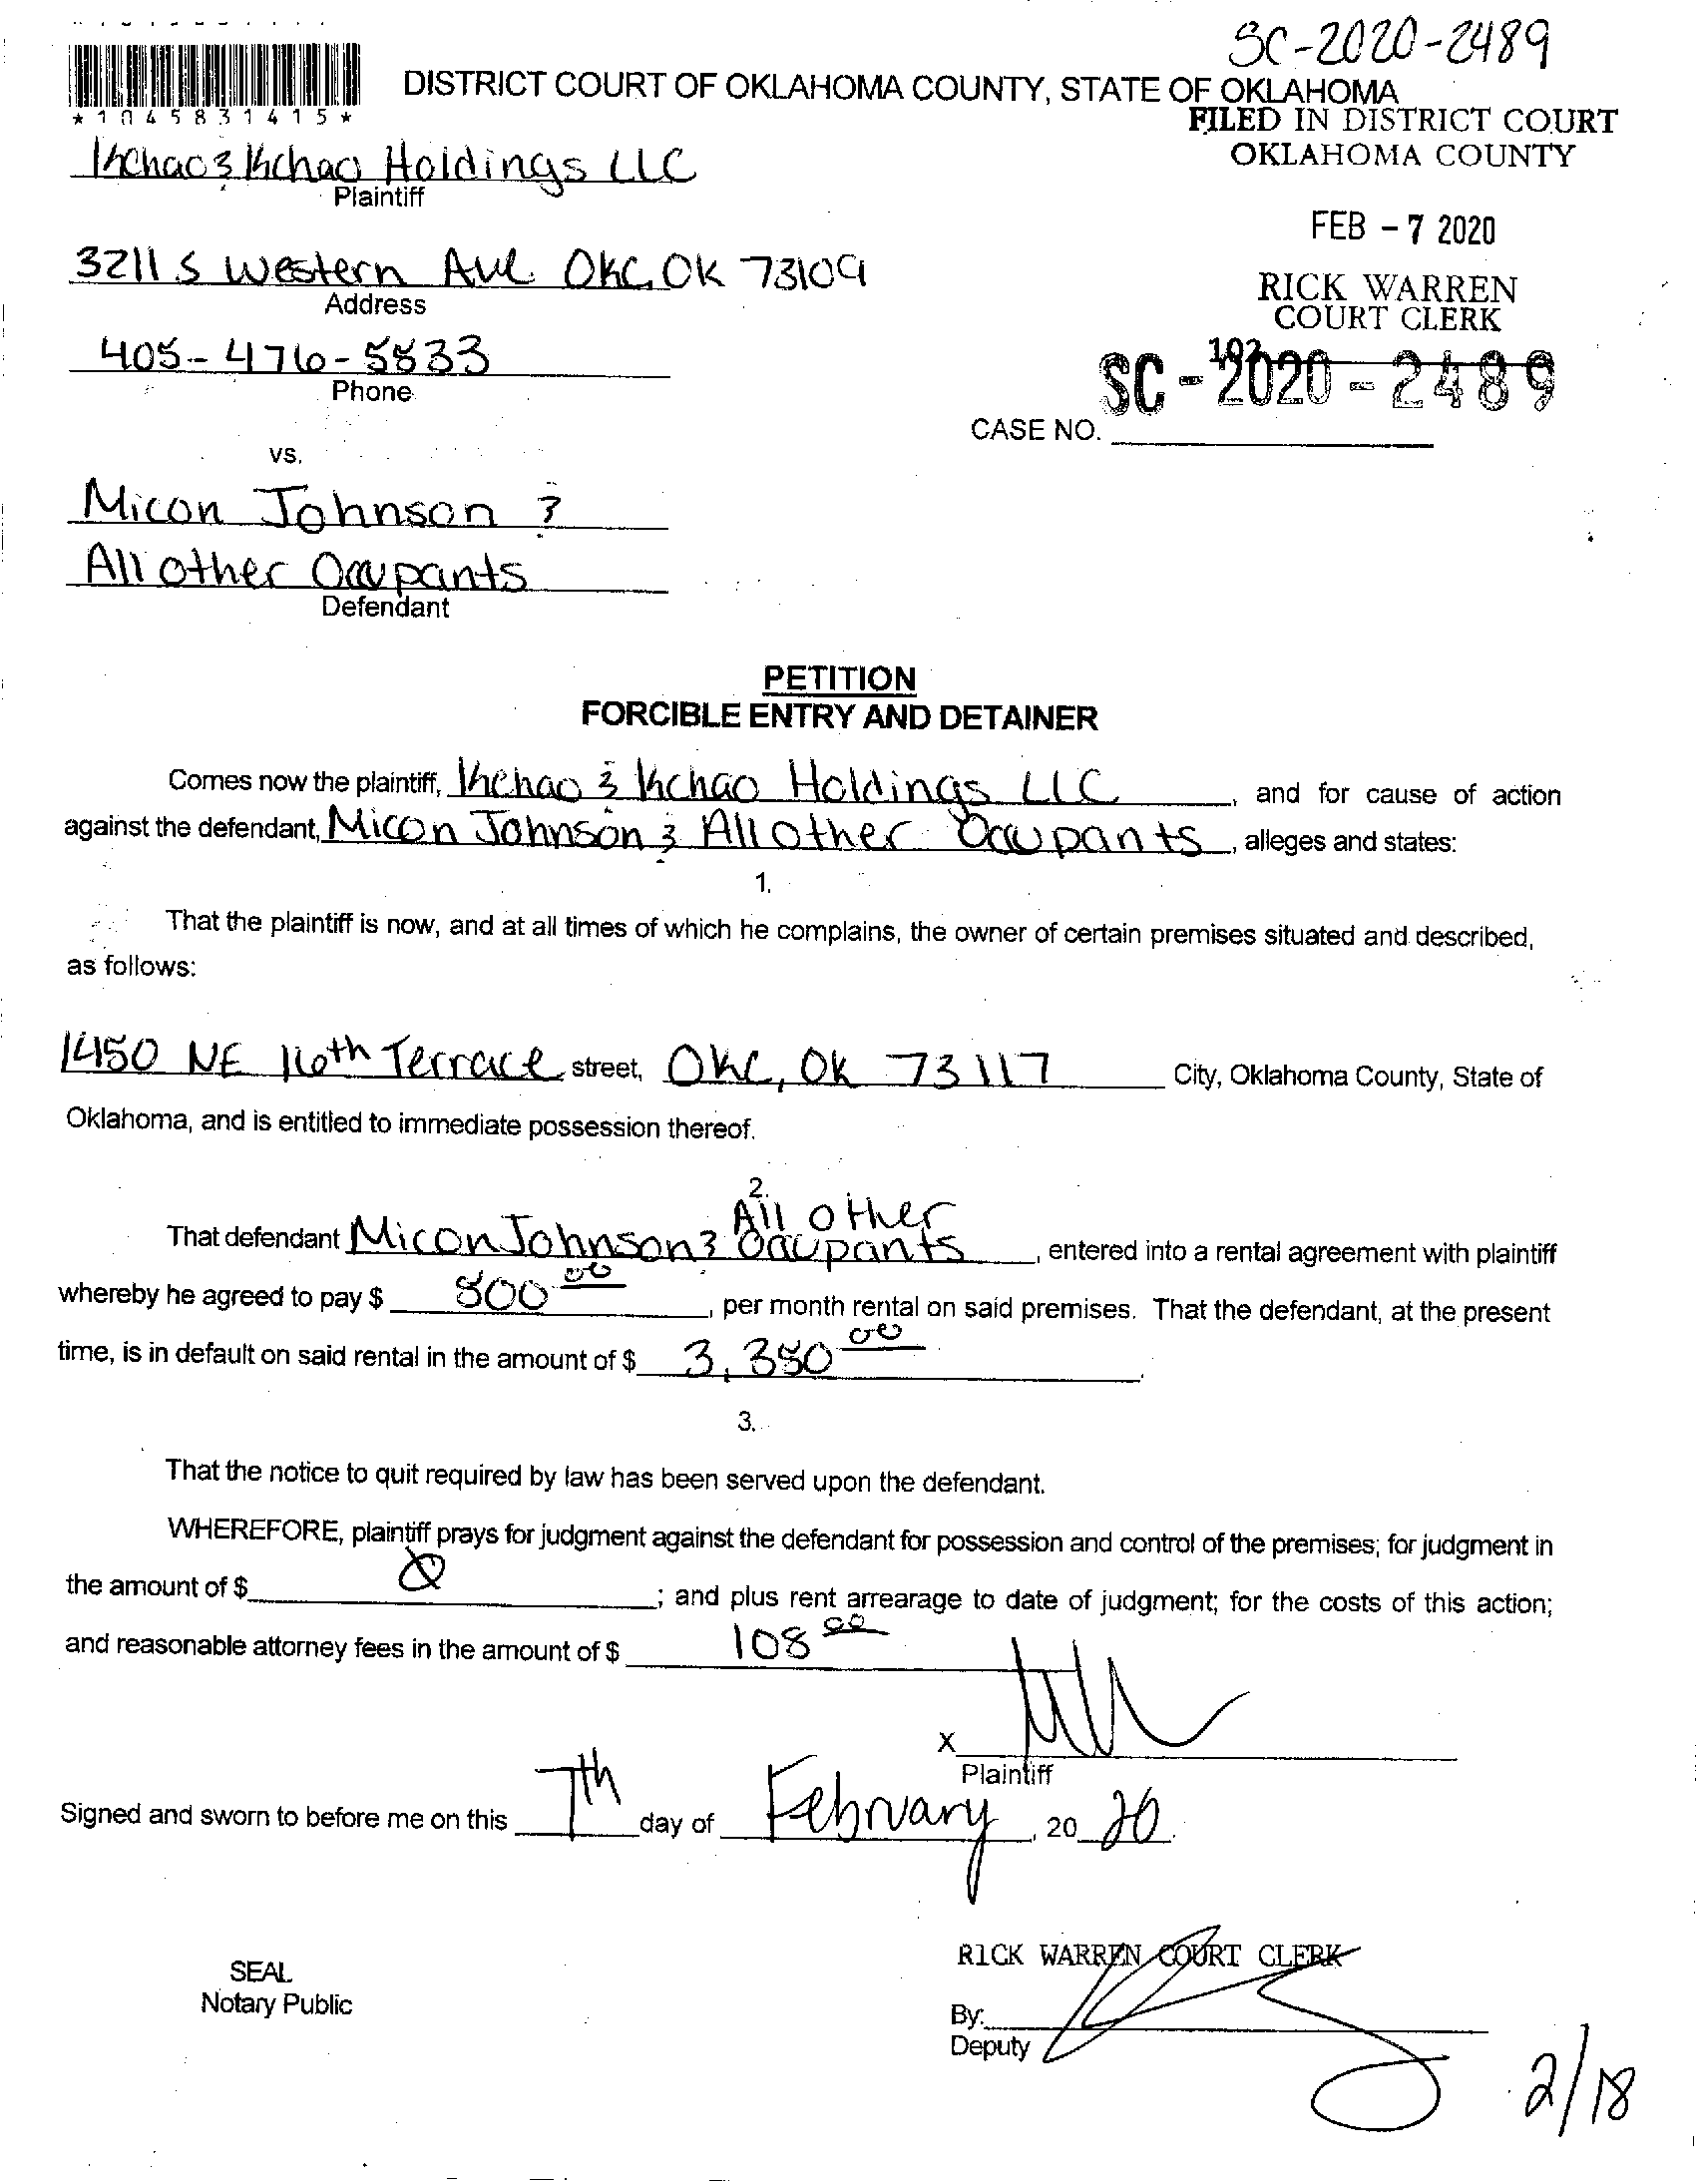 SC-2020-2489
DISTRICT COURT OF OKLAHOMA COUNTY, STATE OF OKLAHOMA
*1045831415*
FILED IN DISTRICT COURT
OKLAHOMA COUNTY
Khchao & Khchao Holdings LLC
Plaintiff
FEB - 7 2020
3211 S Western Ave. OKC, OK 73109
Address
RICK WARREN
COURT CLERK
405-476-5833
Phone
102
SC-2020-2489
CASE NO.
vs.
Micon Johnson &
All other Occupants
Defendant
PETITION
FORCIBLE ENTRY AND DETAINER
Comes now the plaintiff, Khchao & Khchao Holdings LLC, and for cause of action
against the defendant, Micon Johnson & All other Occupants, alleges and states:
1.
That the plaintiff is now, and at all times of which he complains, the owner of certain premises situated and described,
as follows:
1450 NE 16th Terrace street, OKC, OK 73117 City, Oklahoma County, State of
Oklahoma, and is entitled to immediate possession thereof.
2.
That defendant Micon Johnson & All other Occupants, entered into a rental agreement with plaintiff
whereby he agreed to pay $ 800.00, per month rental on said premises. That the defendant, at the present
time, is in default on said rental in the amount of $ 3,380.00.
3.
That the notice to quit required by law has been served upon the defendant.
WHEREFORE, plaintiff prays for judgment against the defendant for possession and control of the premises; for judgment in
the amount of $ 0; and plus rent arrearage to date of judgment; for the costs of this action;
and reasonable attorney fees in the amount of $ 108.00
X
Plaintiff
Signed and sworn to before me on this 7th day of February, 2020.
SEAL
Notary Public
RICK WARREN COURT CLERK
By:
Deputy
2/18